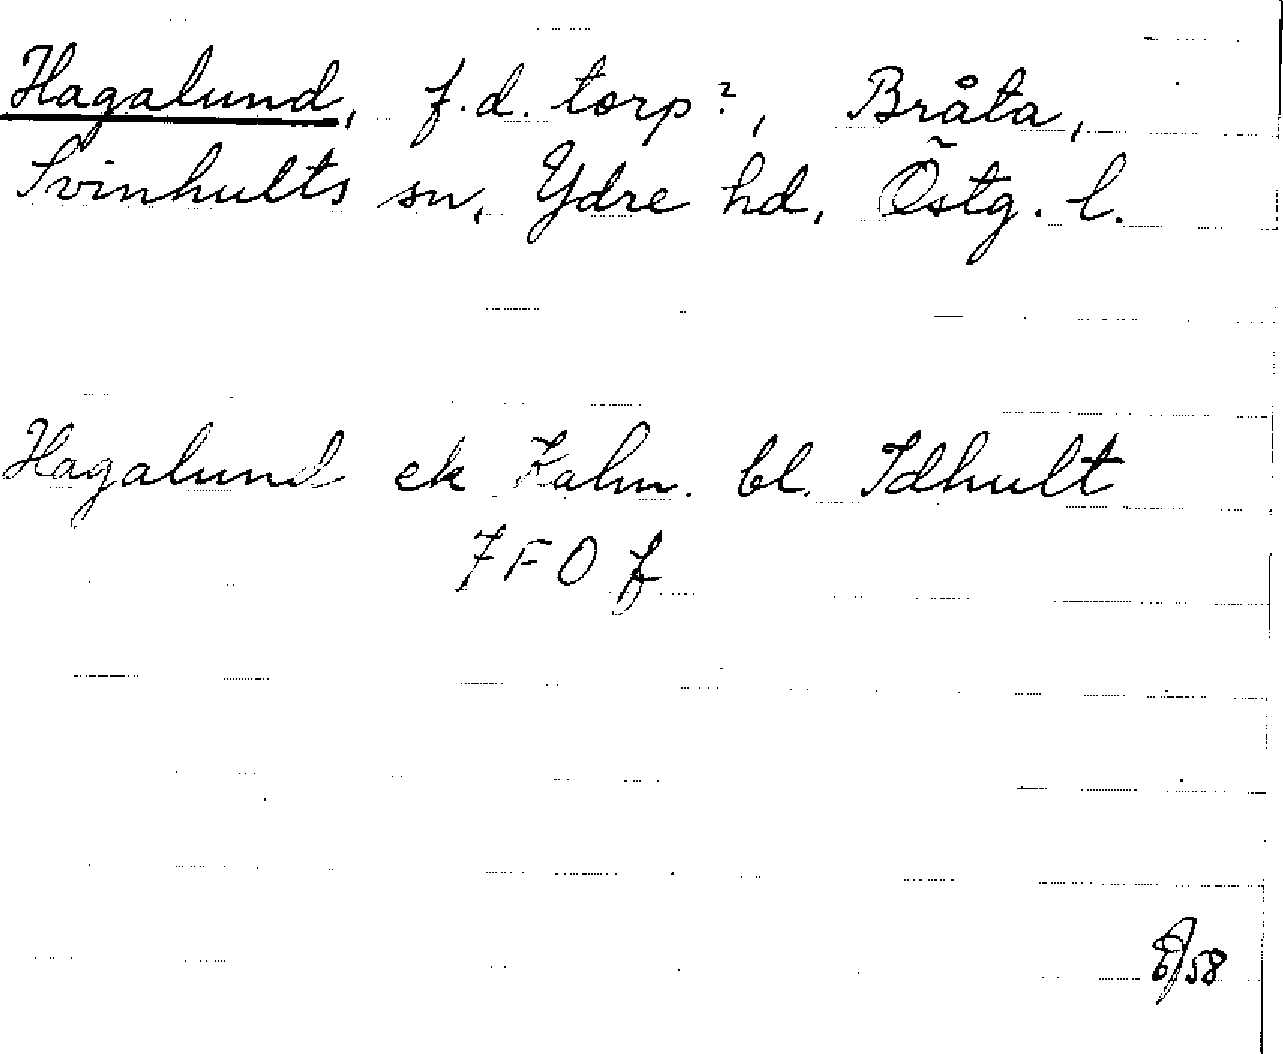 Hagalund, f.d. torp?, Bråta,
Svinhults sn, Ydre hd, Östg. l.
Hagalund ek Kalm. bl. Idhult
7F0f
58